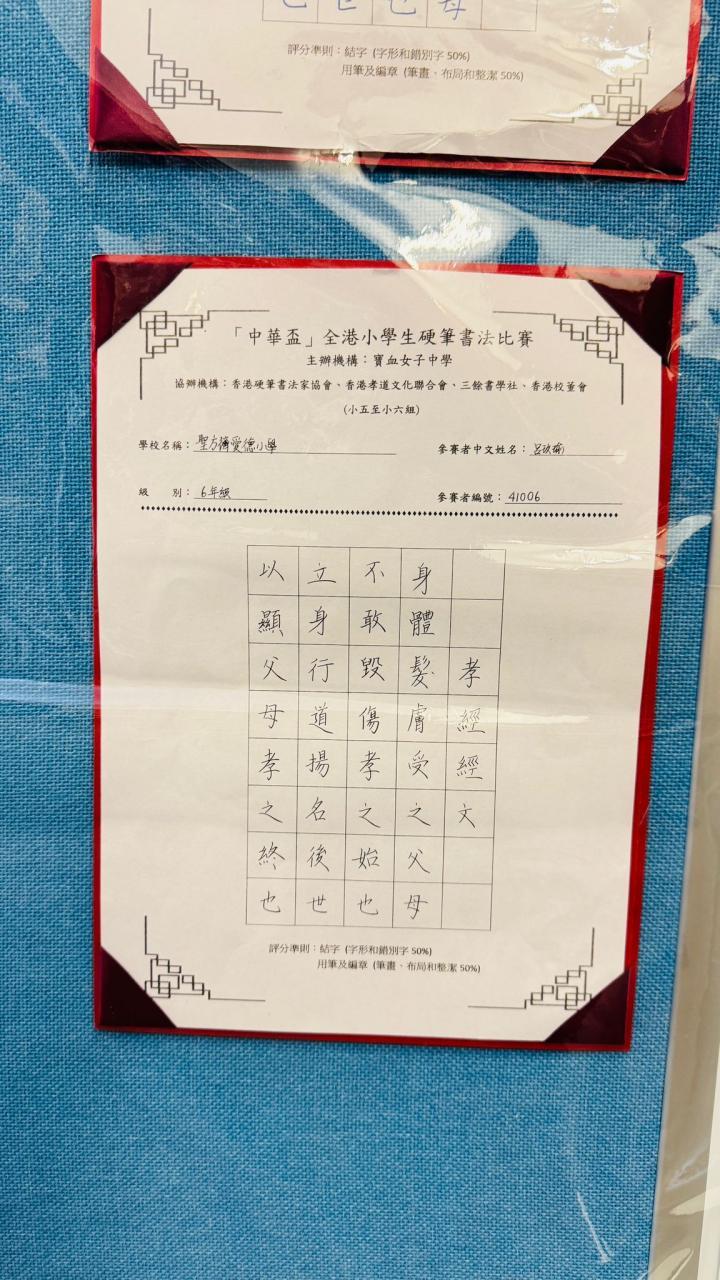 也世也母
評分準則：結字 (字形和錯別字 50%)
用筆及編章 (筆畫、布局和整潔 50%)
「中華盃」全港小學生硬筆書法比賽
主辦機構：寶血女子中學
協辦機構：香港硬筆書法家協會、香港孝道文化聯合會、三餘書學社、香港校董會
(小五至小六組)
學校名稱：聖方濟愛德小學
參賽者中文姓名：呂
級 別：6年級
參賽者編號：41006
孝經經文
身體髮膚受之父母
不敢毀傷孝之始也
立身行道揚名後世
以顯父母孝之終也
評分準則：結字 (字形和錯別字 50%)
用筆及編章 (筆畫、布局和整潔 50%)